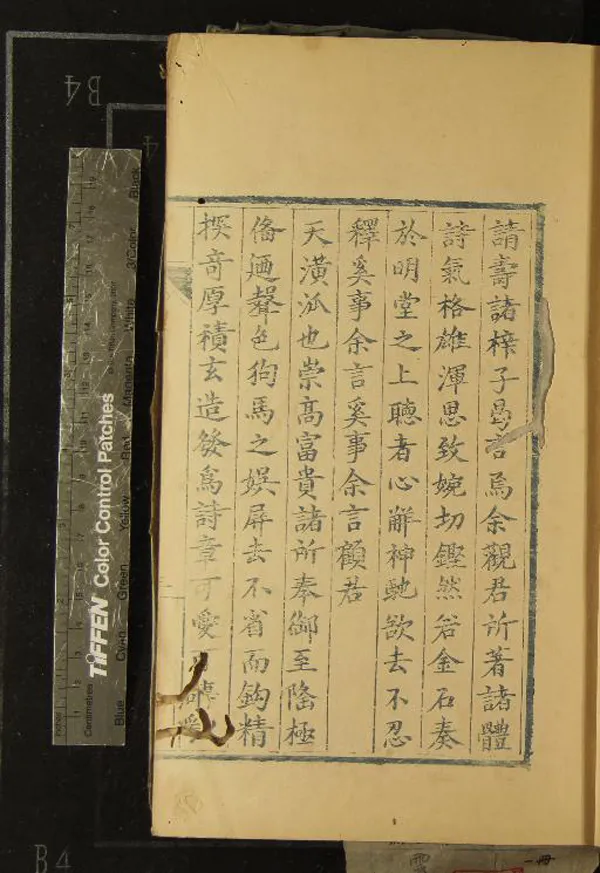 請壽諸梓子曷言焉余觀君所著諸體
詩氣格雄渾思致婉切鏗然若金石奏
於明堂之上聽者心觧神馳欲去不忍
釋奚事余言奚事余言顧君
天潢派也崇髙富貴諸所奉御至隆極
俻廼聲色狗馬之娱屏去不省而鈎精
探竒厚積玄造發爲詩章可愛
TIFFEN Color Control Patches
Blue Cyan Green Yellow Red Magenta White 3/Color Black
Inches
Centimetres
B4
B4
4
一冊